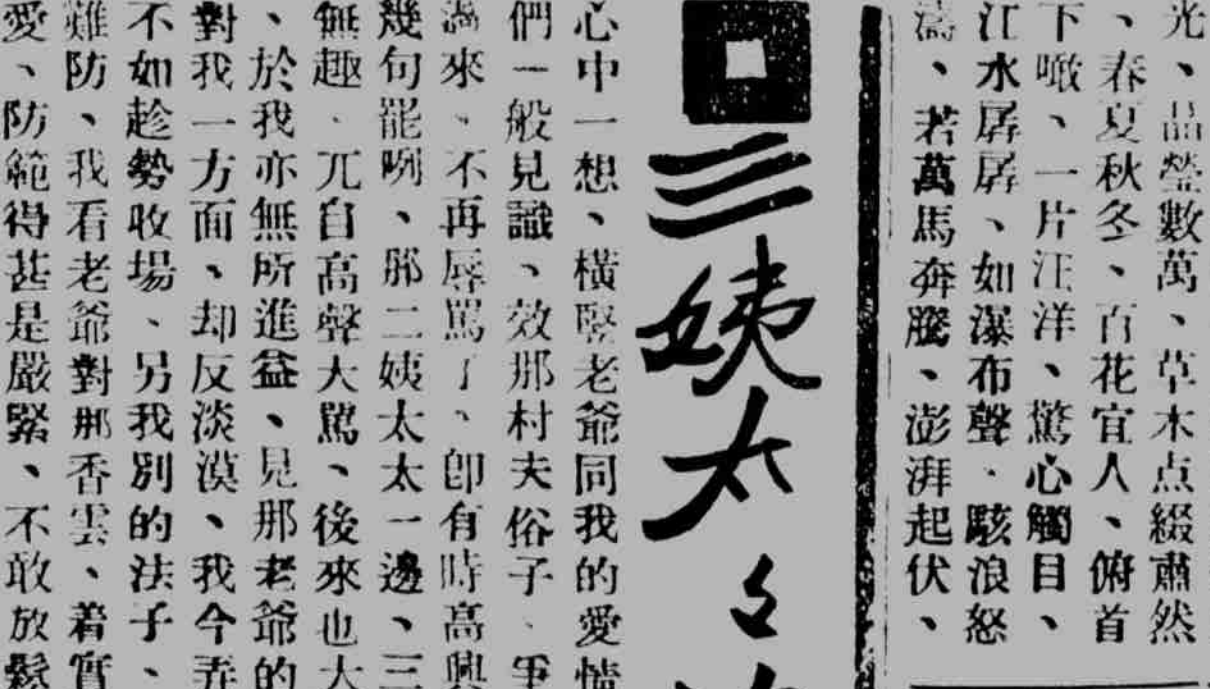 光、晶瑩數萬、草木点綴肅然
、春夏秋冬、百花宜人、俯首
下瞰、一片汪洋、驚心觸目、
江水孱孱、如瀑布聲．駭浪怒
濤、若萬馬奔騰、澎湃起伏、
三姨太々
心中一想、橫堅老爺同我的愛情
們一般見識、效那村夫俗子、
來、不再辱罵了、卽有時高興
幾句罷咧、那二姨太太一邊、三
無趣．兀自高聲大罵、後來也大
、於我亦無所進益、見那老爺的
對我一方面、却反淡漠、我今弄
不如趁勢收場、另我別的法子、
難防、我看老爺對那香雲、着實
愛、防範得甚是嚴緊、不敢放鬆